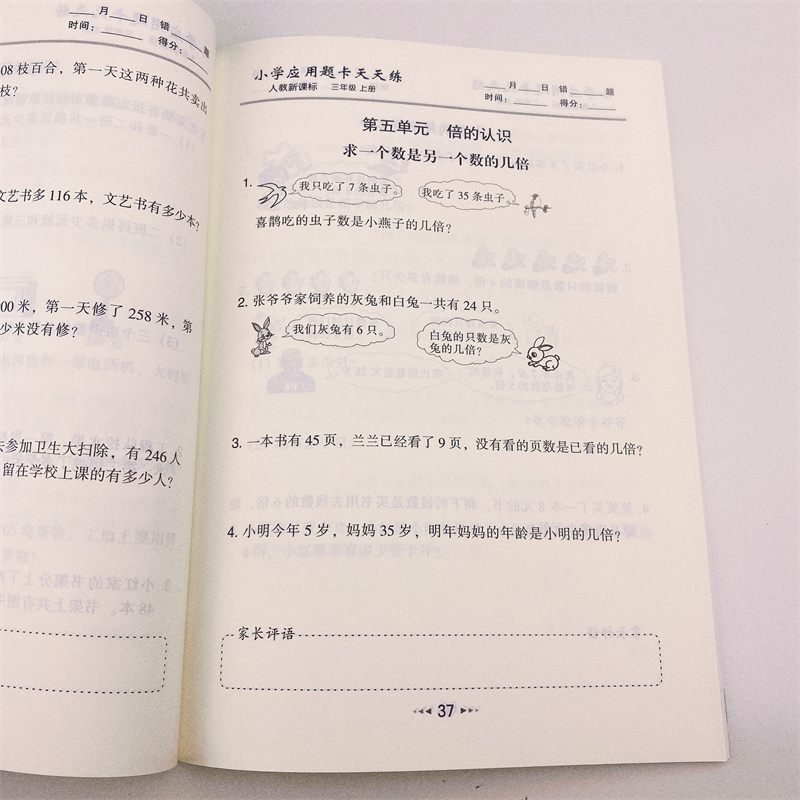 ____月____日 错____题
时间：______ 得分：______
08枝百合，第一天这两种花共卖出
枝？
文艺书多 116 本，文艺书有多少本？
00 米，第一天修了 258 米，第
少米没有修？
去参加卫生大扫除，有 246 人
留在学校上课的有多少人？
小学应用题卡天天练
人教新课标 三年级 上册
____月____日 错____题
时间：______ 得分：______
第五单元 倍的认识
求一个数是另一个数的几倍
1.
我只吃了 7 条虫子。
我吃了 35 条虫子。
喜鹊吃的虫子数是小燕子的几倍？
2. 张爷爷家饲养的灰兔和白兔一共有 24 只。
我们灰兔有 6 只。
白兔的只数是灰
兔的几倍？
3. 一本书有 45 页，兰兰已经看了 9 页，没有看的页数是已看的几倍？
4. 小明今年 5 岁，妈妈 35 岁，明年妈妈的年龄是小明的几倍？
家长评语
37